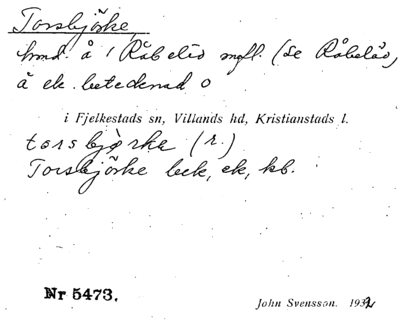 Torsbjörke,
hmd. å 1 Råbelöv mfl. (se Råbelöv,
å ek. betecknad o
i Fjelkestads sn, Villands hd, Kristianstads l.
torsbjörke (r.)
Torsbjörke beck, ek, kb.
Nr 5473. John Svensson. 1932